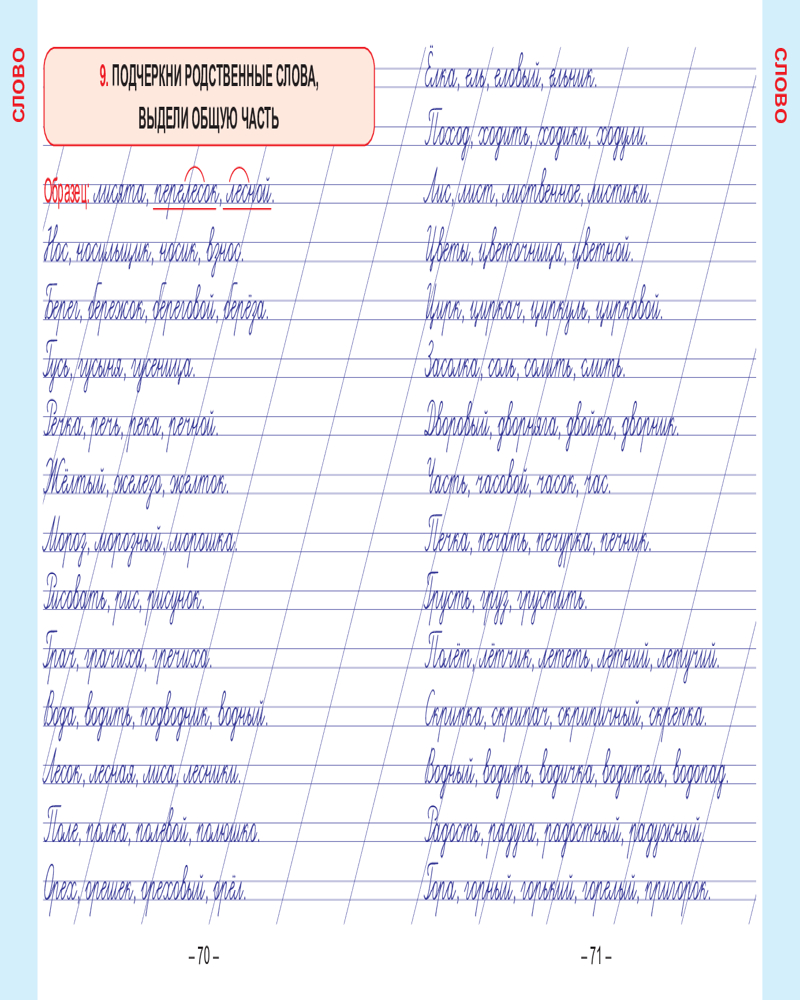 СЛОВО
9. ПОДЧЕРКНИ РОДСТВЕННЫЕ СЛОВА,
ВЫДЕЛИ ОБЩУЮ ЧАСТЬ
Образец: лисята, перелесок, лесной.
Нос, носильщик, носик, взнос.
Берег, бережок, береговой, берёза.
Гусь, гусыня, гусеница.
Речка, печь, река, речной.
Жёлтый, железо, желток.
Мороз, морозный, морошка.
Рисовать, рис, рисунок.
Грач, грачиха, гречиха.
Вода, водить, подводник, водный.
Лесок, лесная, лиса, лесники.
Поле, полка, полевой, полюшко.
Орех, орешек, ореховый, орёл.
– 70 –
Ёлка, ель, еловый, ельник.
Поход, ходить, ходики, ходули.
Лис, лист, лиственное, листики.
Цветы, цветочница, цветной.
Цирк, циркач, циркуль, цирковой.
Засолка, соль, солить, слить.
Дворовый, дворняга, двойка, дворник.
Часть, часовой, часок, час.
Печка, печать, печурка, печник.
Грусть, груз, грустить.
Полёт, лётчик, лететь, летний, летучий.
Скрипка, скрипач, скрипичный, скрепка.
Водный, водить, водичка, водитель, водопад.
Радость, радуга, радостный, радужный.
Гора, горный, горький, горелый, пригорок.
– 71 –
СЛОВО